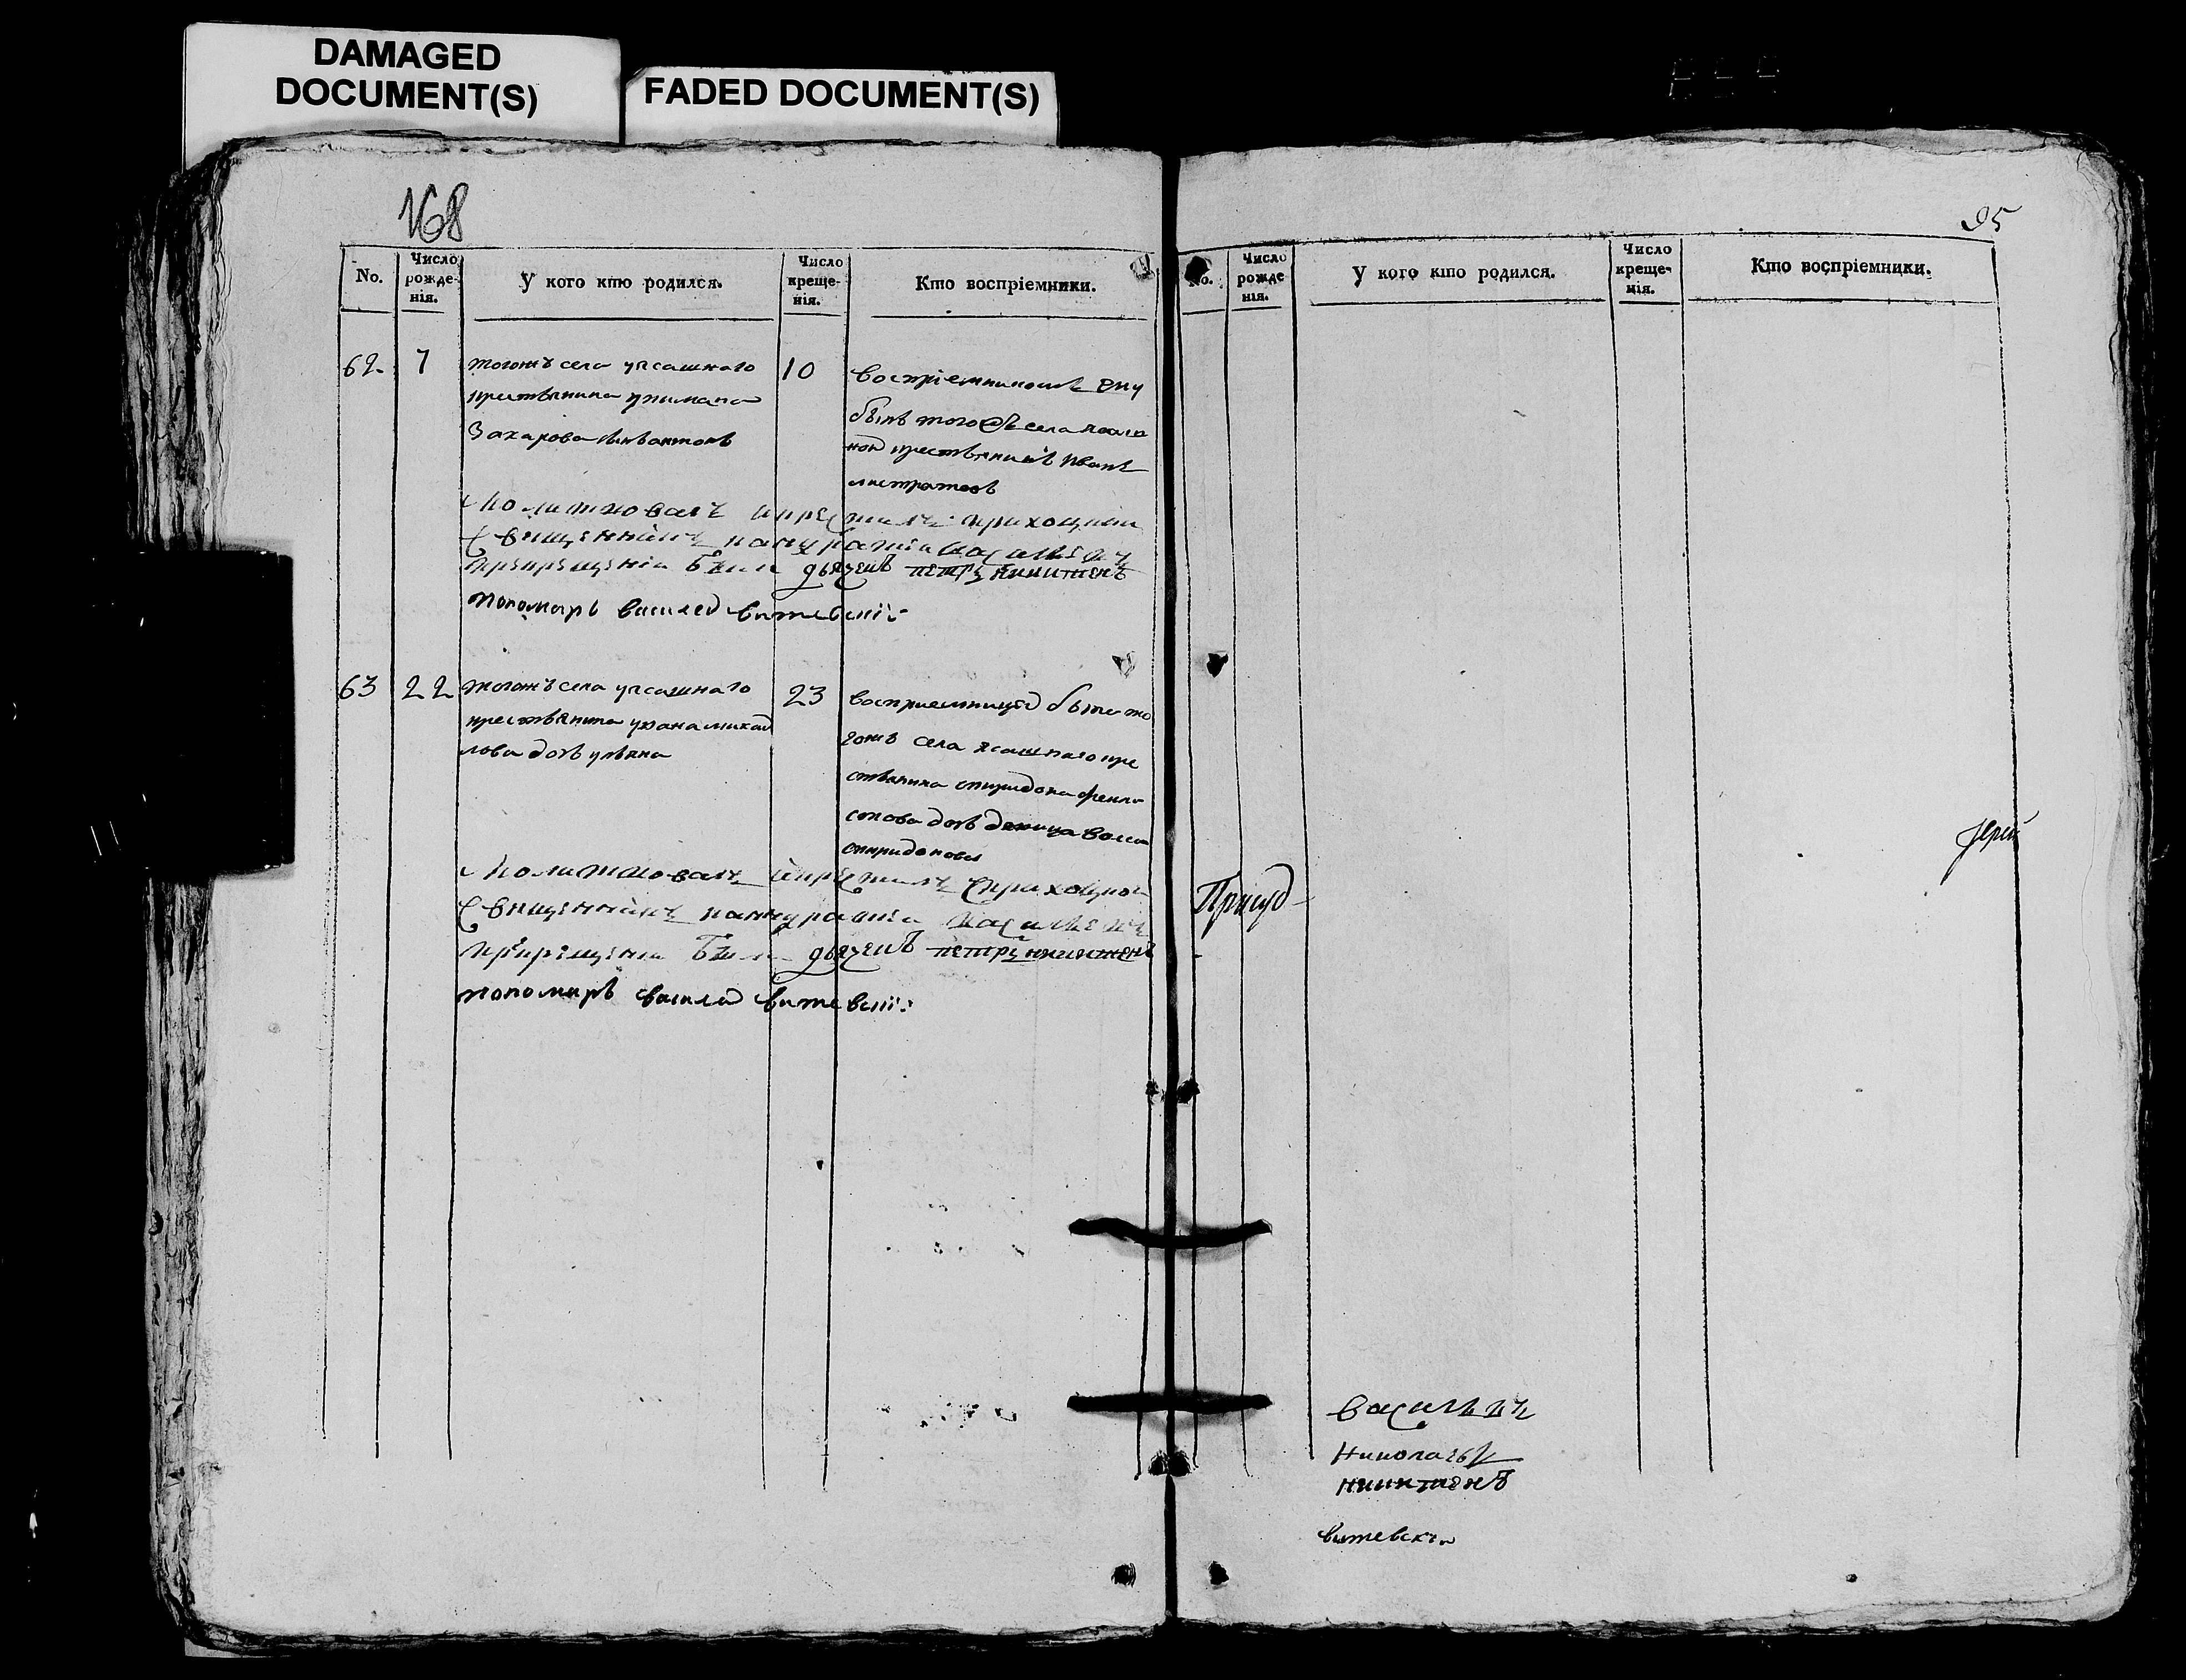 DAMAGED
DOCUMENT(S)
FADED DOCUMENT(S)
168
No.
Число рожде-нія.
У кого кто родился.
Число креще-нія.
Кто воспріемники.
62
7
тогожъ села уясашнаго
крестьянина
Захарова сынъ антонъ
10
воспріемникомъ ему
былъ того села ясаш
ной крестьянинъ Иванъ
молитвовалъ икрестилъ приходній
священникъ васильевъ
прикрещеніи были дьячекъ петръ никитинъ
пономарь василей витевскій
63
22
тогожъ села уясашнаго
крестьянина михай
лова дочь ульяна
23
восприемницей была то
гожъ села ясашнаго кре
стьянина спиридона
дочь девица
спиридонова
молитвовалъ икрестилъ
священникъ васильевъ
прикрещеніи были дьячекъ петръ никитинъ
пономарь василей витевскій
95
No.
Число рожде нія.
У кого кто родился.
Число креще-нія.
Кто воспріемники.
Іерей
васильевъ
никитинъ
витевскій